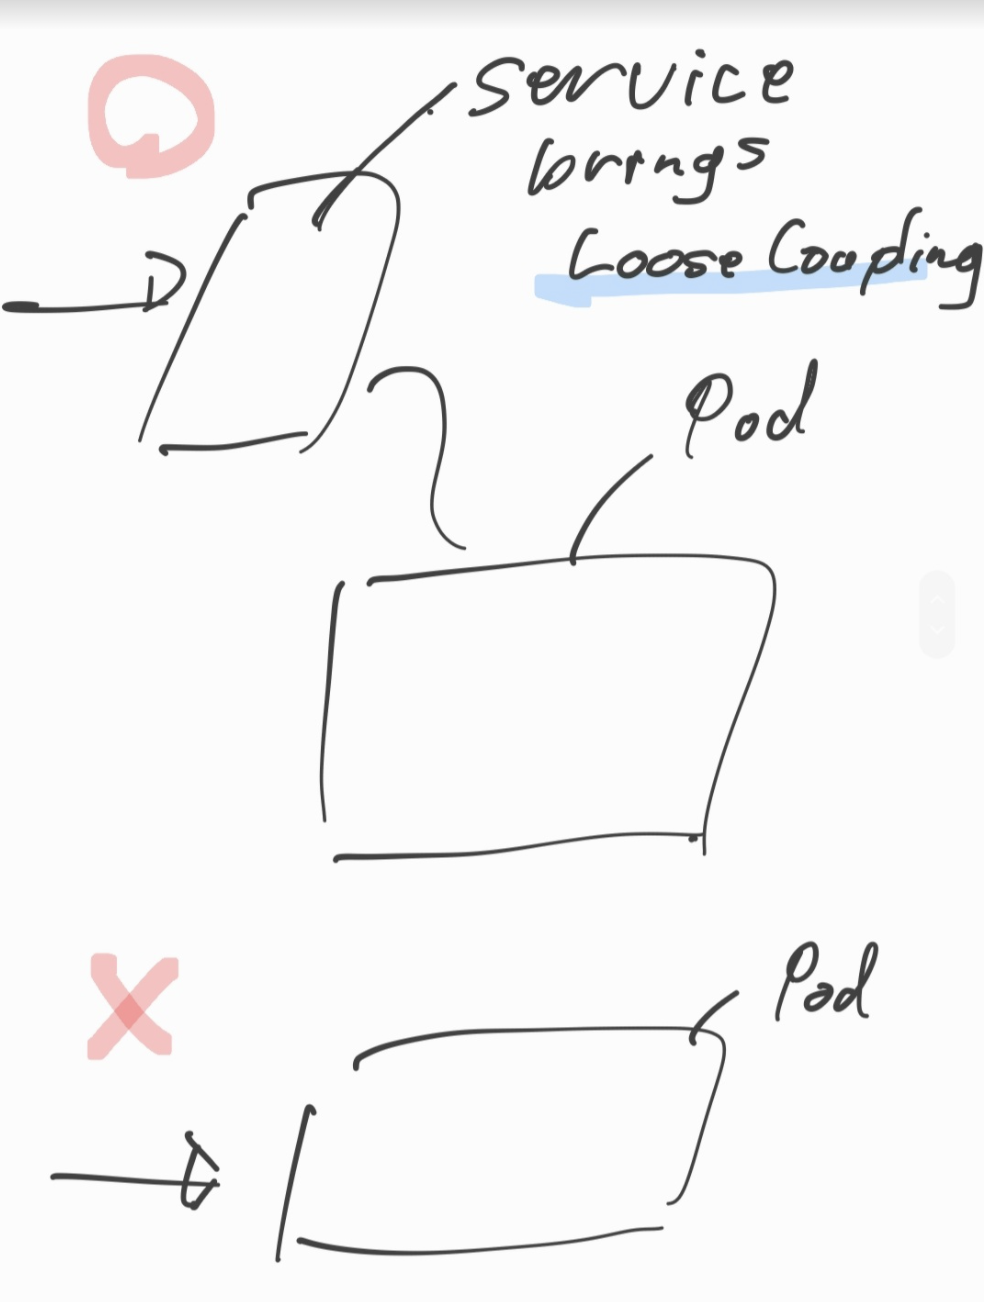 Service
brings
Loose Coupling
Pod
Pod